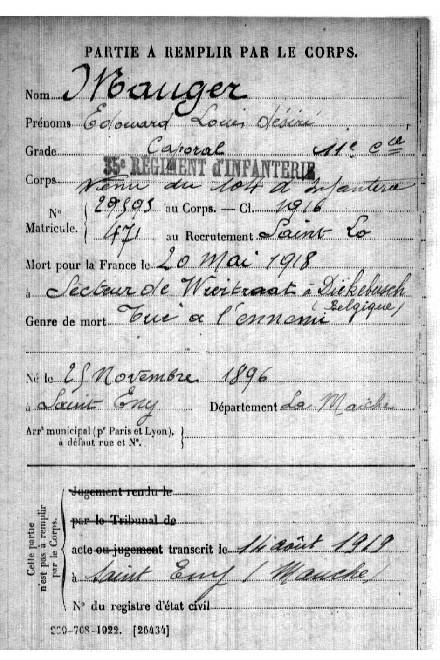 PARTIE A REMPLIR PAR LE CORPS.
Nom Mauger
Prénoms Edouard Louis Désiré
Grade Caporal 11e Cie
35e REGIMENT d'INFANTERIE
Corps venu du 104 d'Infanterie
No Matricule. { 29595 au Corps. — Cl. 1916
471 au Recrutement Saint Lo
Mort pour la France le 20 Mai 1918
à Secteur de Wiertraat à Dickebusch
(Belgique)
Genre de mort Tué à l'ennemi
Né le 25 Novembre 1896
à Saint Eny Département La Manche
Arrt municipal (pr Paris et Lyon),
à défaut rue et No.
Cette partie n'est pas à remplir par le Corps.
Jugement rendu le
par le Tribunal de
acte ou jugement transcrit le 14 août 1919
à Saint Eny (Manche)
No du registre d'état civil
220-708-1922. [26434]